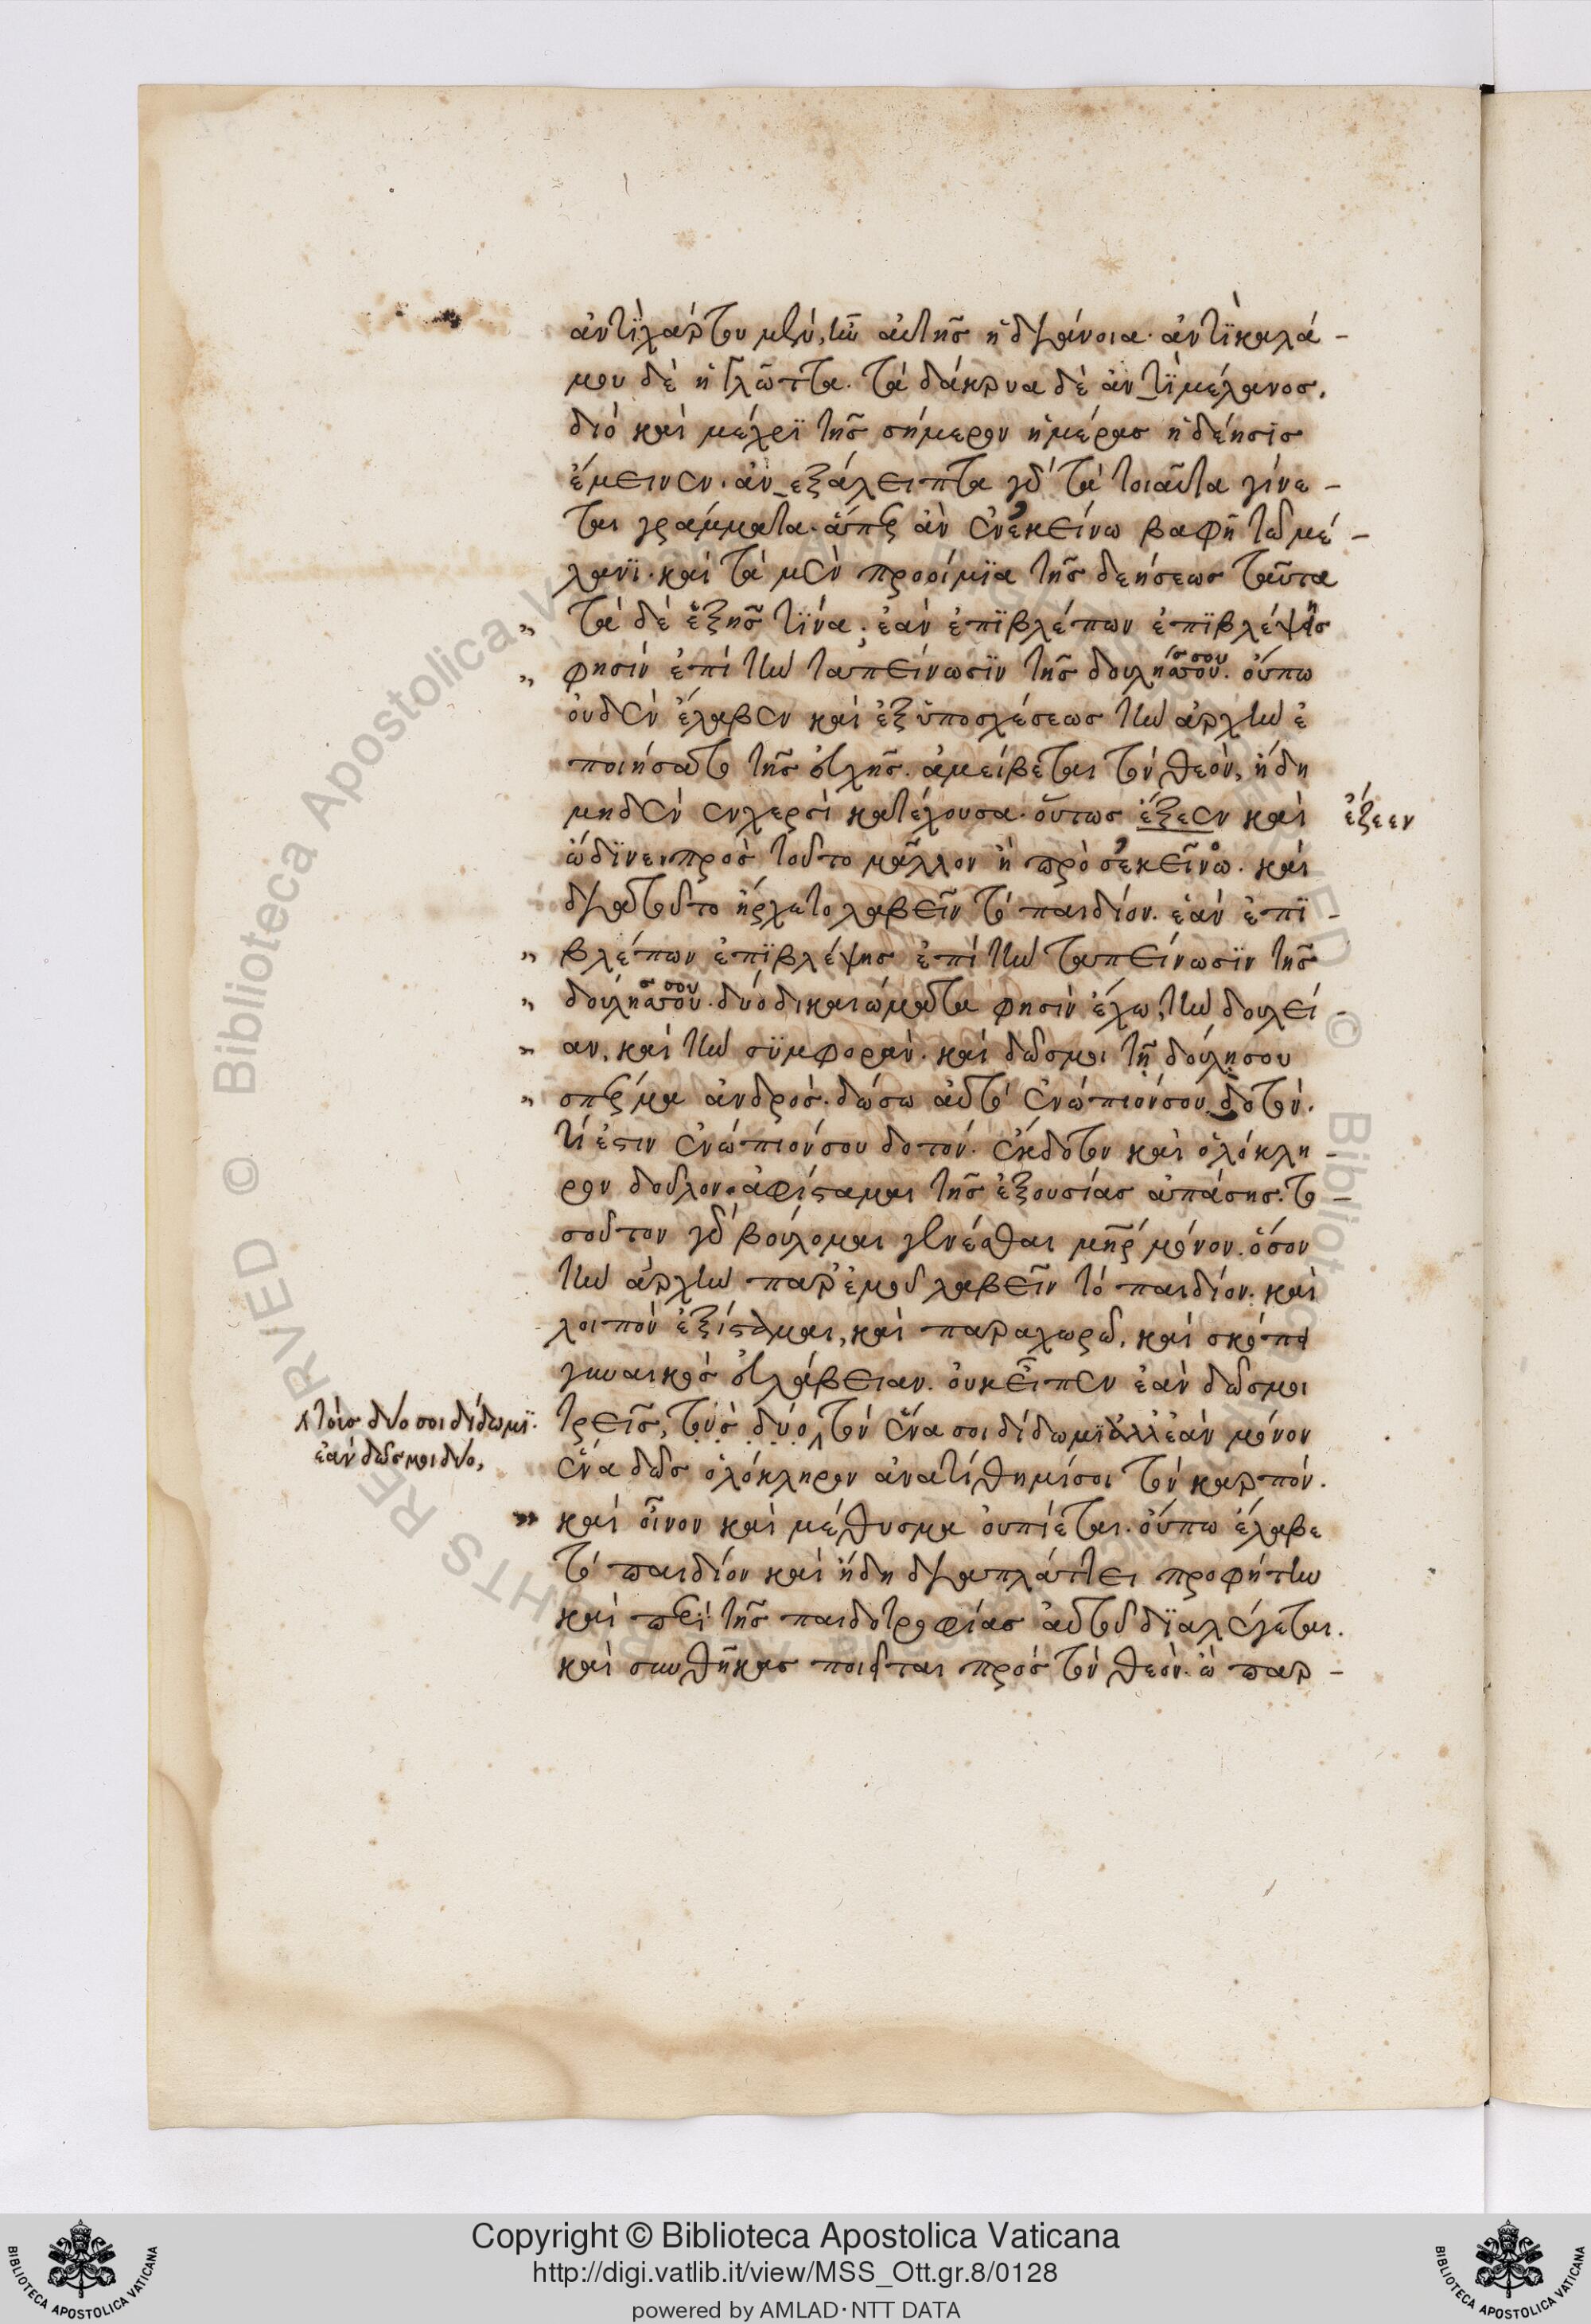 ἀντὶ χάρτου μὲν, ἦν αὐτῆς ἡ διάνοια· ἀντὶ καλά-
μου δὲ ἡ γλῶττα. τὰ δάκρυα δὲ ἀντὶ μέλανος.
διὸ καὶ μέχρι τῆς σήμερον ἡμέρας ἡ δέησις
ἔμεινεν. ἀνεξάλειπτα γὰρ τὰ τοιαῦτα γίνε-
ται γράμματα. ἅπερ ἂν ἐν ἐκείνω βαφῇ τῶ μέ-
λανι. καὶ τὰ μὲν προοίμια τῆς δεήσεως ταῦτα
τὰ δὲ ἑξῆς τίνα; ἐὰν ἐπιβλέπων ἐπιβλέψης
φησὶν ἐπὶ τὴν ταπείνωσιν τῆς δούλης σου. οὔπω
οὐδὲν ἔλαβεν καὶ ἐξ ὑποσχέσεως τὴν ἀρχὴν ἐ
ποιήσατο τῆς εὐχῆς. ἀμείβεται τὸν θεὸν, ἤδη
μηδὲν ἐν χερσὶ κατέχουσα. οὕτως ἔξεεν καὶ
ἔζεεν
ὤδινεν πρὸς τοῦτο μᾶλλον ἢ πρὸς ἐκεῖνο. καὶ
διὰ τοῦτο ηὔχετο λαβεῖν τὸ παιδίον. ἐὰν ἐπι-
βλέπων ἐπιβλέψης ἐπὶ τὴν ταπείνωσιν τῆς
δούλης σου. δύο δικαιώματα φησὶν ἔχω, τὴν δουλεί-
αν, καὶ τὴν συμφορὰν. καὶ δῶς μοι τῆ δούλη σου
σπέρμα ἀνδρός. δώσω αὐτὸ ἐνώπιόν σου δοτόν.
τί ἐστιν ἐνώπιόν σου δοτόν. ἔκδοτον καὶ ὁλόκλη-
ρον δοῦλον. ἀφίσταμαι τῆς ἐξουσίας ἁπάσης. το-
σοῦτον γὰρ βούλομαι γενέσθαι μήτηρ μόνον. ὅσον
τὴν ἀρχὴν παρ' ἐμοῦ λαβεῖν τὸ παιδίον. καὶ
λοιπὸν ἐξίσταμαι, καὶ παραχωρῶ, καὶ σκόπει
γυναικὸς εὐλάβειαν. οὐκ εἶπεν ἐὰν δῶς μοι
τρεῖς, τοὺς δύο, τὸν ἕνα σοι δίδωμι ἀλλ' ἐὰν μόνον
τοὺς δύο σοι δίδωμι.
ἐὰν δῶς μοι δύο,
ἕνα δῶς ὁλόκληρον ἀνατίθημί σοι τὸν καρπόν.
καὶ οἶνον καὶ μέθυσμα οὐ πίεται. οὔπω ἔλαβε
τὸ παιδίον καὶ ἤδη διαπλάττει προφήτην
καὶ περὶ τῆς παιδοτροφίας αὐτοῦ διαλέγεται.
καὶ συνθήκας ποιεῖται πρὸς τὸν θεόν. ὢ παρ-
Copyright © Biblioteca Apostolica Vaticana
http://digi.vatlib.it/view/MSS_Ott.gr.8/0128
powered by AMLAD·NTT DATA